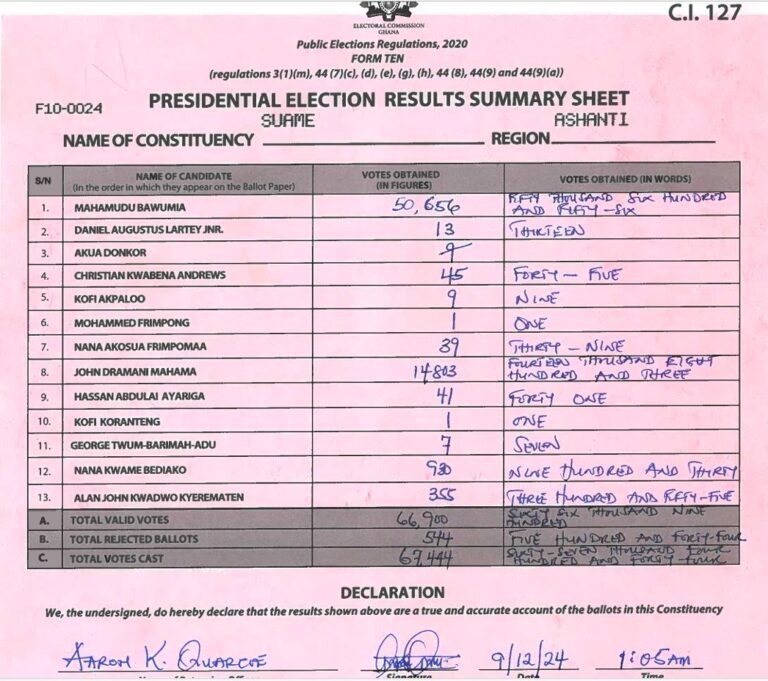 C.I. 127
ELECTORAL COMMISSION
GHANA
Public Elections Regulations, 2020
FORM TEN
(regulations 3(1)(m), 44 (7)(c), (d), (e), (g), (h), 44 (8), 44(9) and 44(9)(a))
F10-0024
PRESIDENTIAL ELECTION RESULTS SUMMARY SHEET
SUAME ASHANTI
NAME OF CONSTITUENCY REGION
S/N NAME OF CANDIDATE (In the order in which they appear on the Ballot Paper) VOTES OBTAINED (IN FIGURES) VOTES OBTAINED (IN WORDS)
1. MAHAMUDU BAWUMIA 50,656 FIFTY THOUSAND SIX HUNDRED AND FIFTY-SIX
2. DANIEL AUGUSTUS LARTEY JNR. 13 THIRTEEN
3. AKUA DONKOR
4. CHRISTIAN KWABENA ANDREWS 45 FORTY - FIVE
5. KOFI AKPALOO 9 NINE
6. MOHAMMED FRIMPONG 1 ONE
7. NANA AKOSUA FRIMPOMAA 39 THIRTY - NINE
8. JOHN DRAMANI MAHAMA 14803 FOURTEEN THOUSAND EIGHT HUNDRED AND THREE
9. HASSAN ABDULAI AYARIGA 41 FORTY ONE
10. KOFI KORANTENG 1 ONE
11. GEORGE TWUM-BARIMAH-ADU 7 SEVEN
12. NANA KWAME BEDIAKO 930 NINE HUNDRED AND THIRTY
13. ALAN JOHN KWADWO KYEREMATEN 355 THREE HUNDRED AND FIFTY-FIVE
A. TOTAL VALID VOTES 66,900 SIXTY SIX THOUSAND NINE HUNDRED
B. TOTAL REJECTED BALLOTS 544 FIVE HUNDRED AND FORTY-FOUR
C. TOTAL VOTES CAST 67,444 SIXTY-SEVEN THOUSAND FOUR HUNDRED AND FORTY-FOUR
DECLARATION
We, the undersigned, do hereby declare that the results shown above are a true and accurate account of the ballots in this Constituency
AARON K. QUARCIE 9/12/24 1:05AM
Signature Date Time